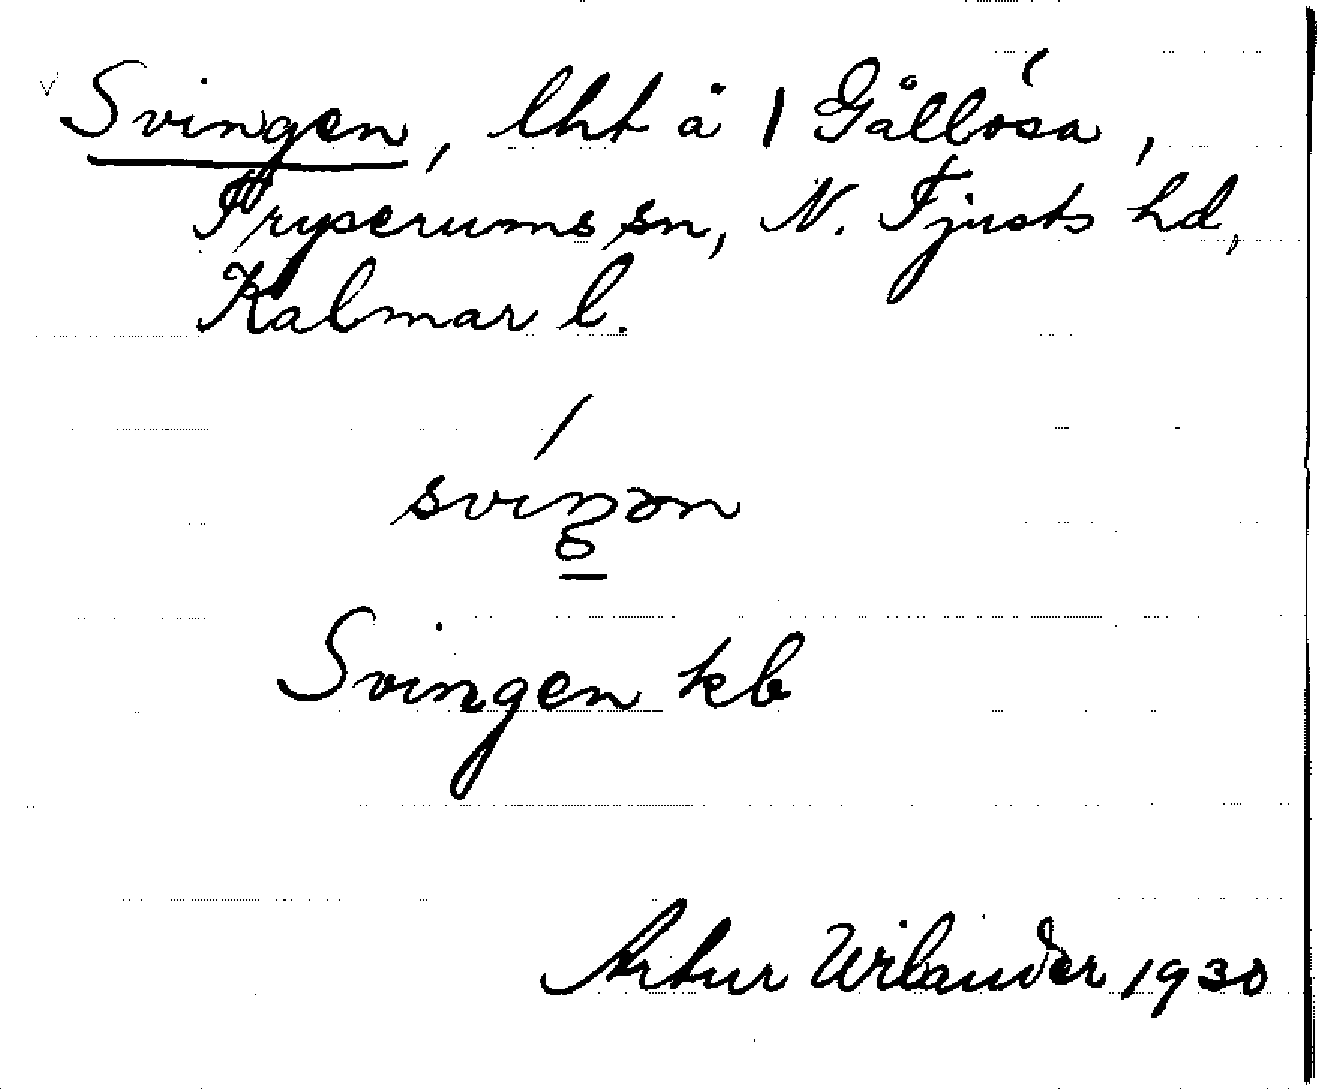 Svingen, lht å 1 Gållösa,
Tryserums sn, N. Tjusts hd,
Kalmar l.
sviŋən
Svingen kb
Artur Wilander 1930